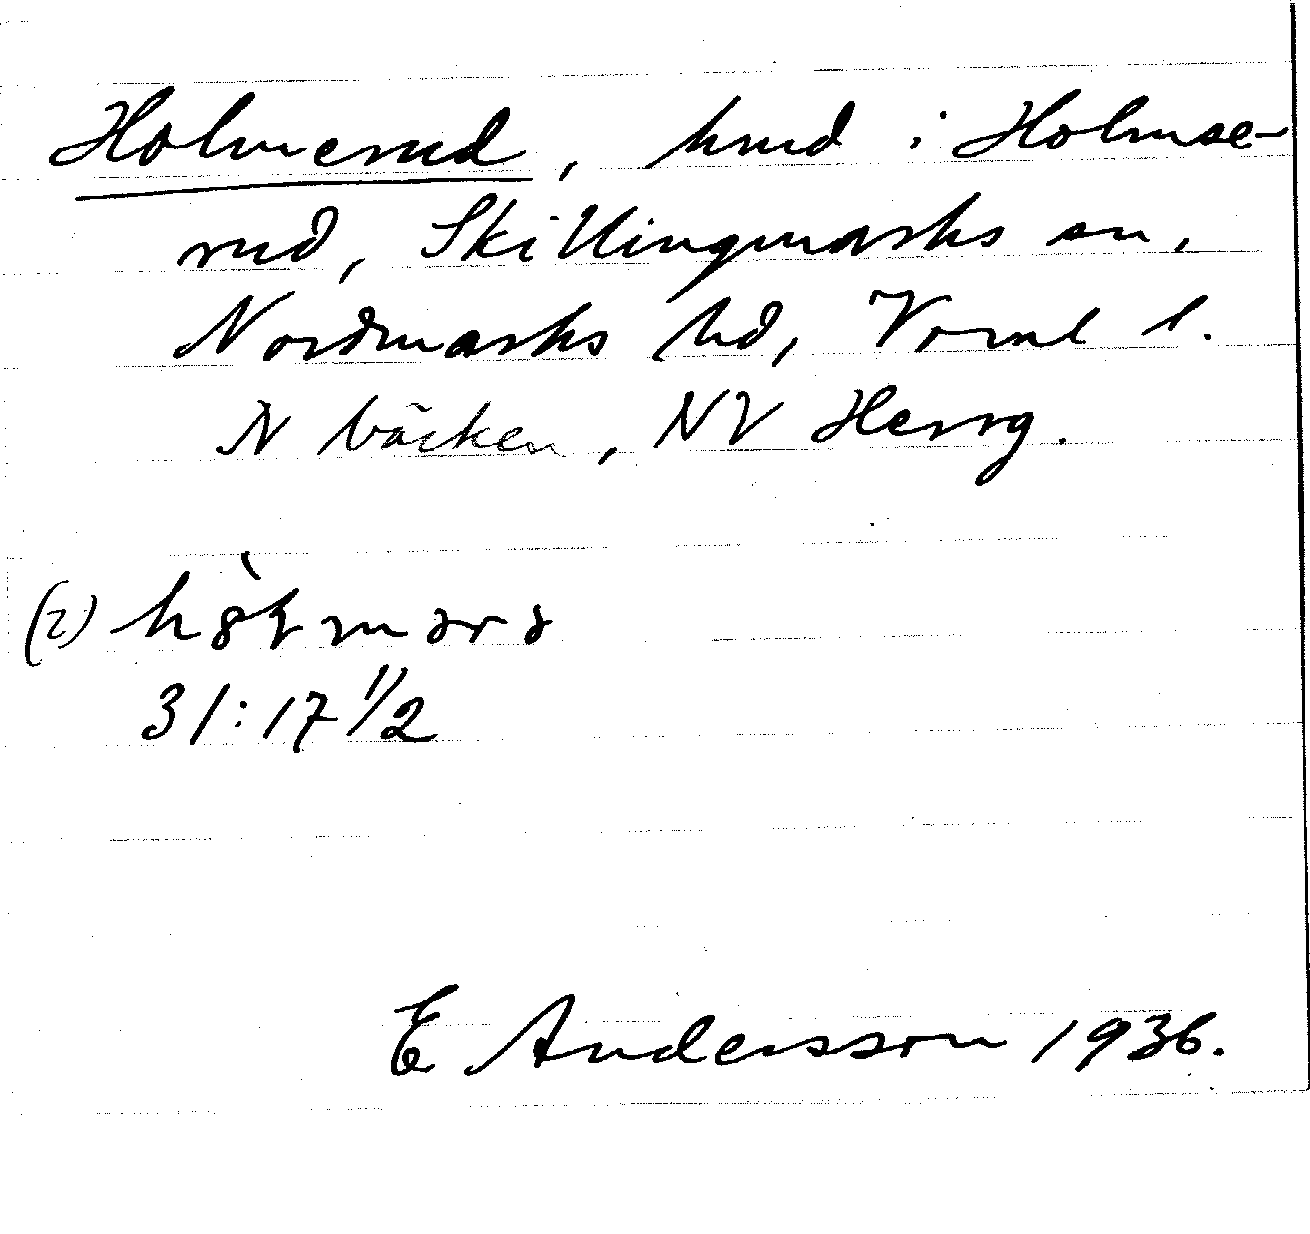 Holmerud, hmd i Holmse-
rud, Skillingmarks sn,
Nordmarks hd, Vrml l.
N bäcken, NV Herrg.
(2)
31:17 1/2
E Andersson 1936.